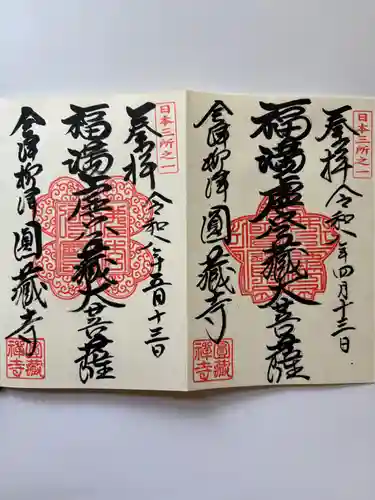 日本三所之一
登拝 令和八年四月十三日
福満虚空蔵大菩薩
会津柳津 圓蔵寺
圓藏禅寺
日本三所之一
登拝 令和八年五月十三日
福満虚空蔵大菩薩
会津柳津 圓蔵寺
圓藏禅寺